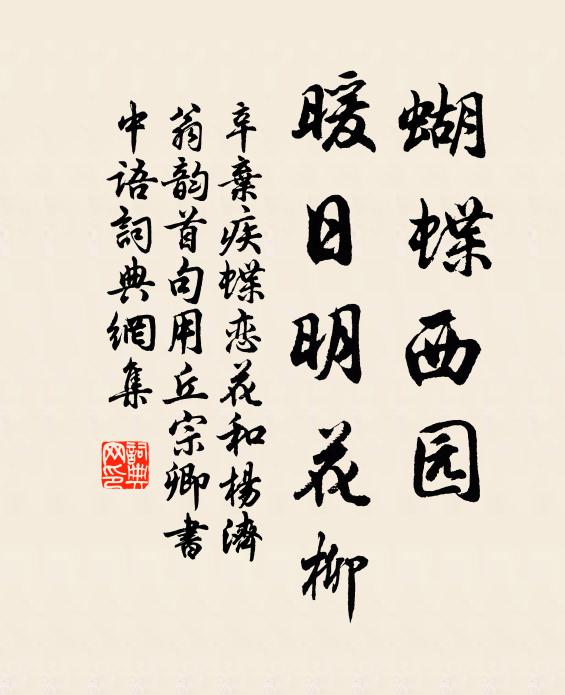 蝴蝶西园
暖日明花柳
辛棄疾蝶恋花和楊濟
翁韵首句用丘宗卿書
中语詞典網集
詞典
网印